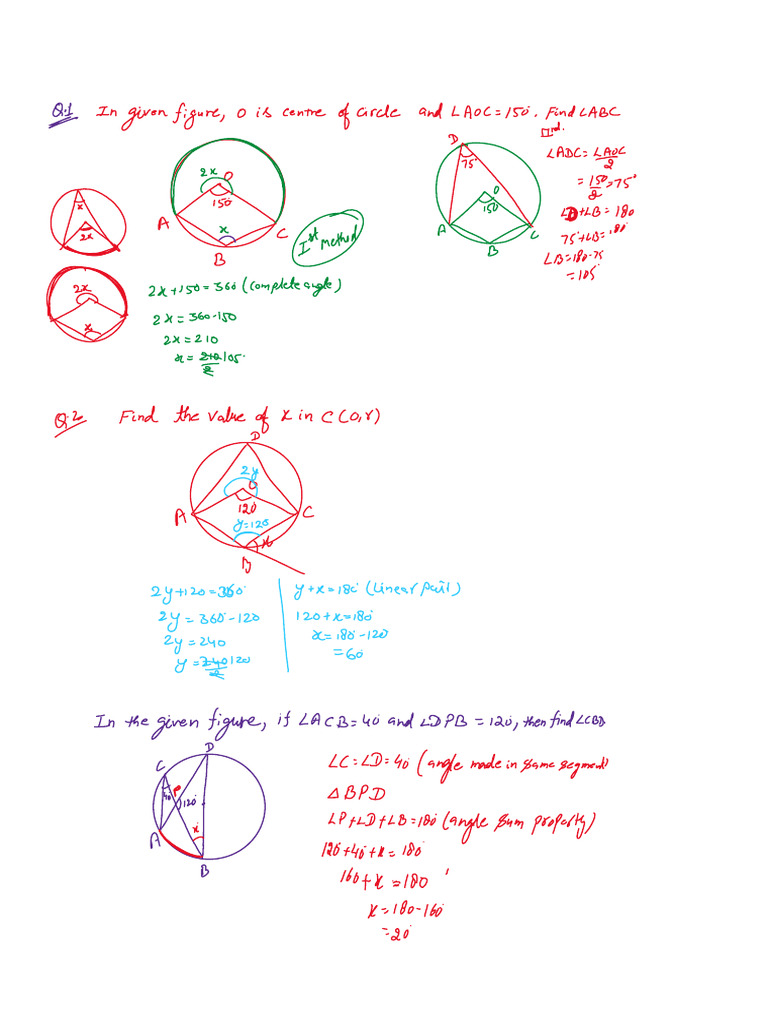 Q.1 In given figure, O is centre of circle and ∠AOC = 150°. Find ∠ABC
2x
O
150°
A
x
C
B
Ist Method
x
2x
2x
x
2x + 150 = 360° (complete angle)
2x = 360-150
2x = 210
x = 210/2 105°
IInd.
D
75°
O
150°
A
C
B
∠ADC = ∠AOC/2
= 150/2 = 75°
∠D + ∠B = 180
75° + ∠B = 180°
∠B = 180-75
= 105°
Q.2 Find the value of x in C(O,r)
D
2y
O
120°
A
C
y=120
x
B
2y + 120 = 360°
2y = 360° - 120
2y = 240
y = 240/2 120
y + x = 180° (Linear pair)
120 + x = 180°
x = 180° - 120
= 60°
In the given figure, if ∠ACB = 40° and ∠DPB = 120°, then find ∠CBD
D
C
P
40
120°
x
A
B
∠C = ∠D = 40° (angle made in same segment)
△BPD
∠P + ∠D + ∠B = 180° (angle sum property)
120° + 40° + x = 180°
160° + x = 180
x = 180 - 160°
= 20°